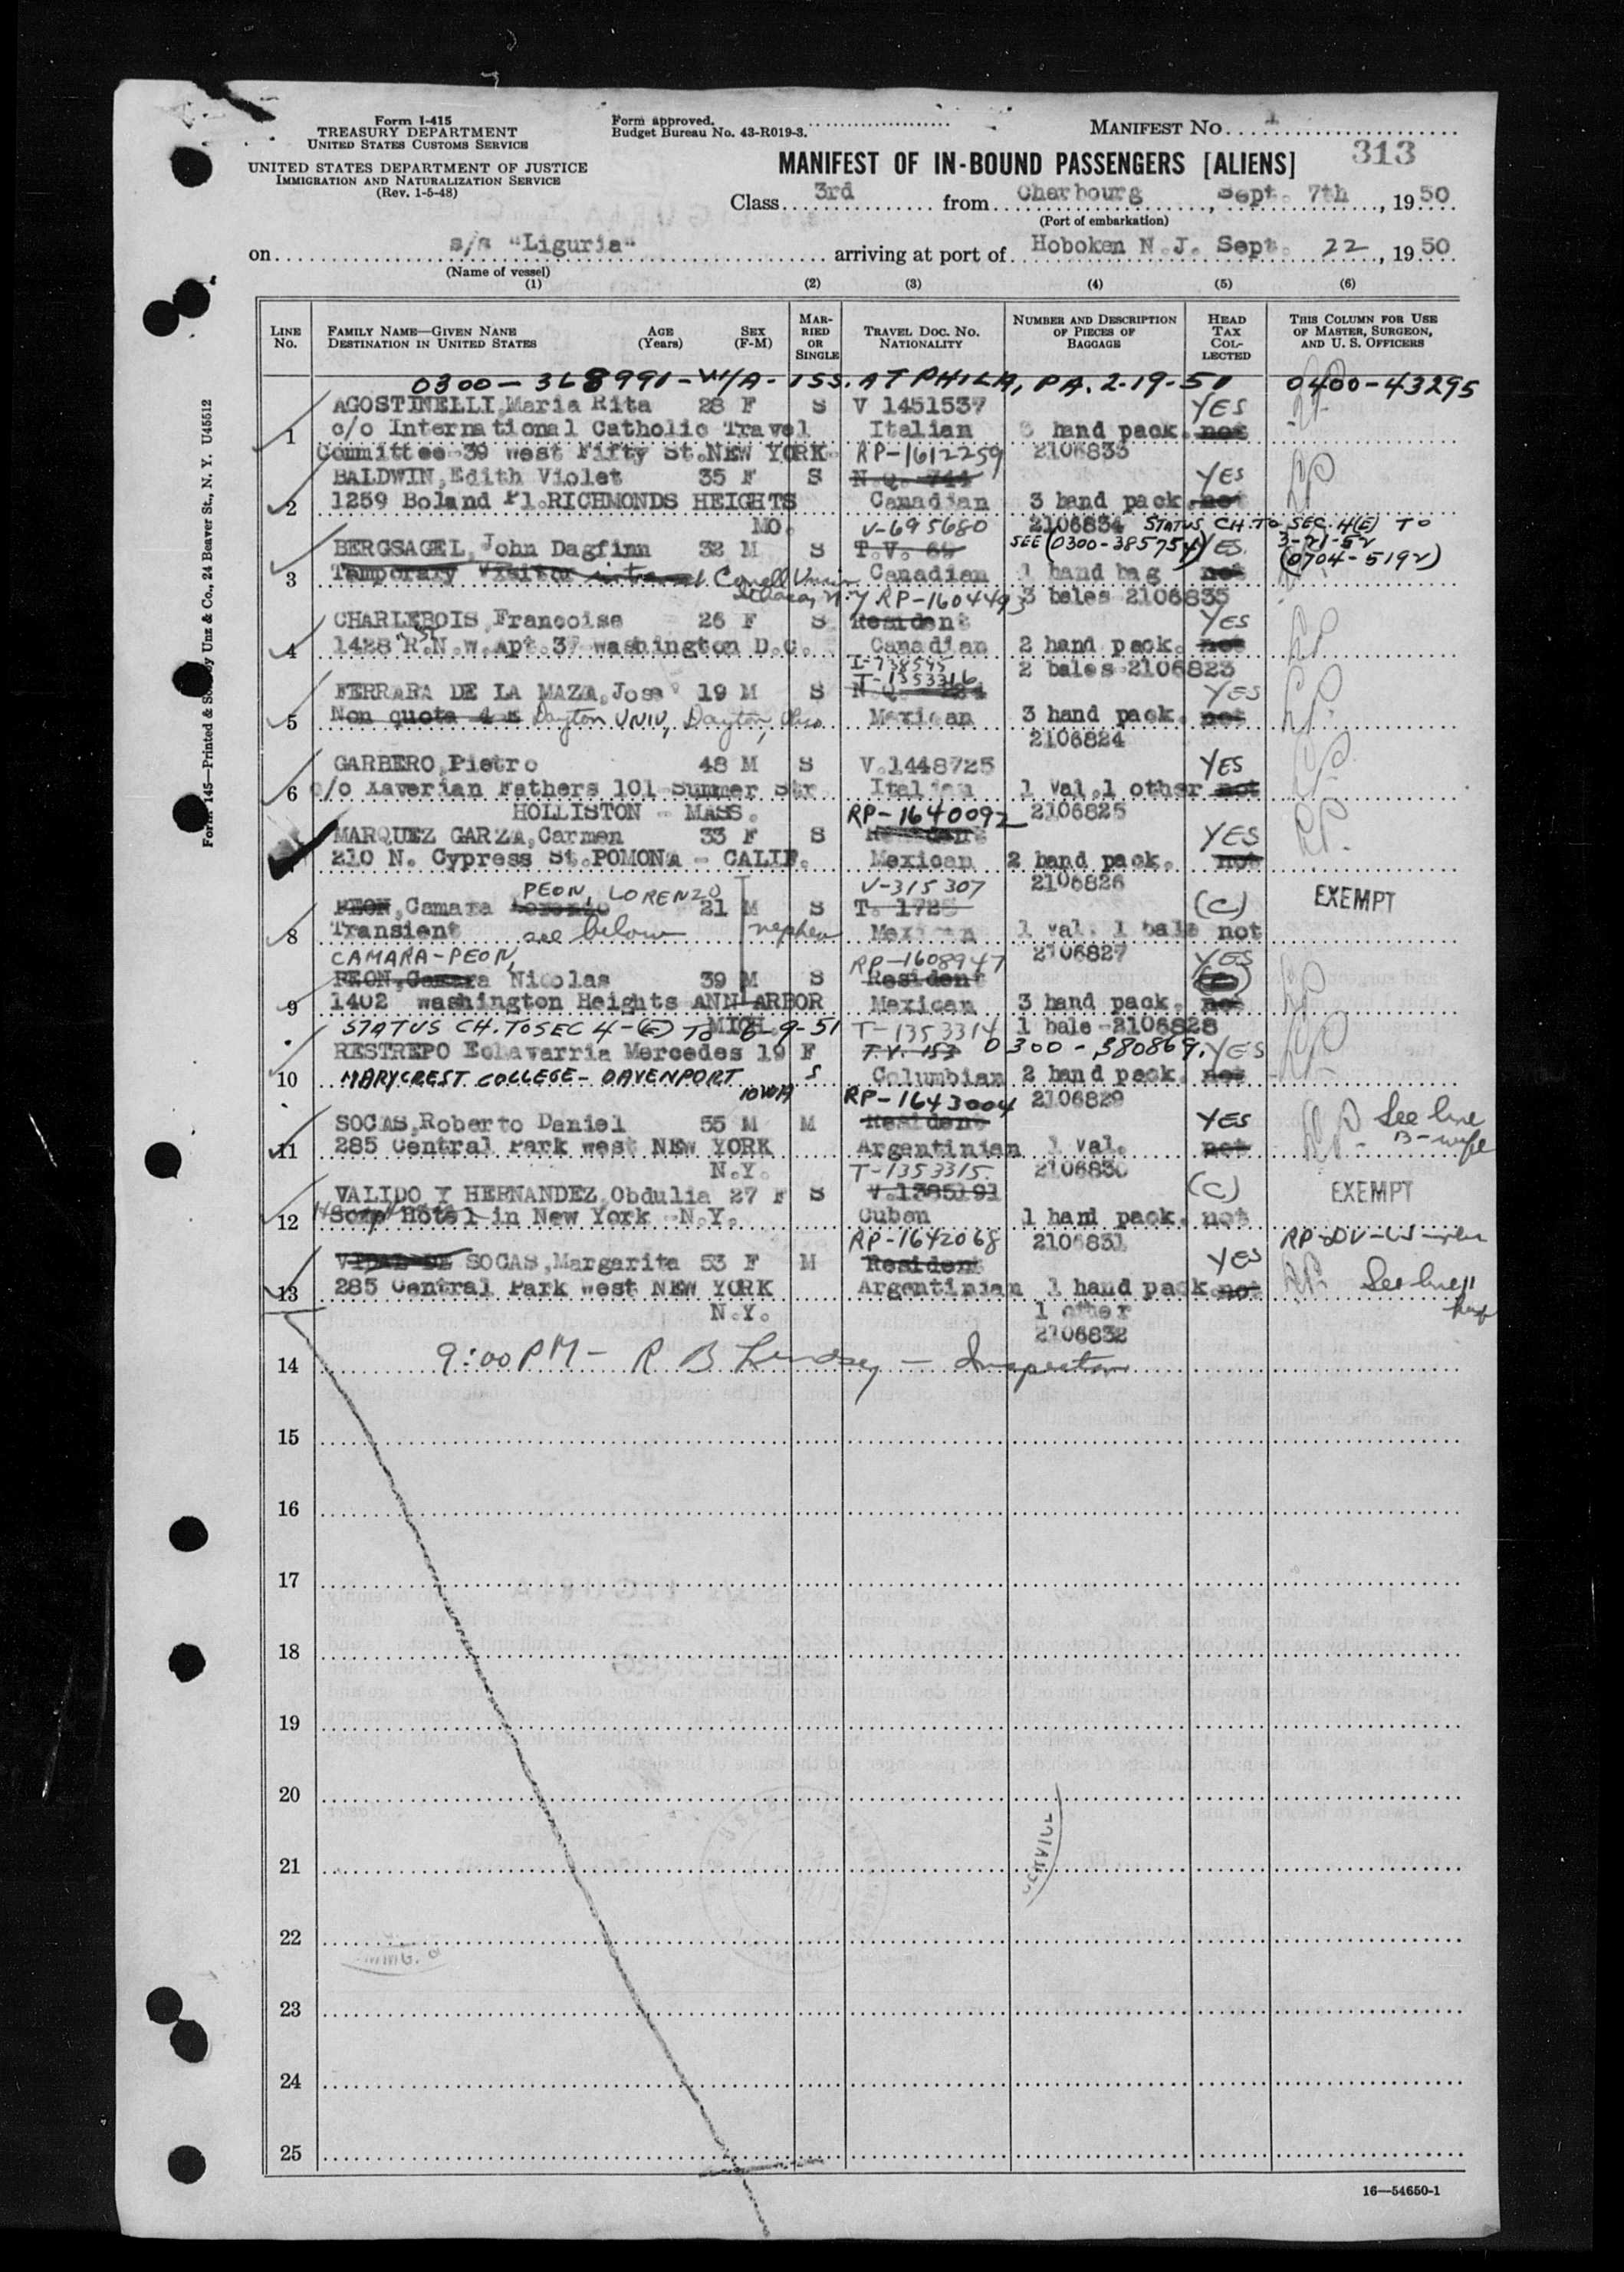 Form I-415
TREASURY DEPARTMENT
UNITED STATES CUSTOMS SERVICE
UNITED STATES DEPARTMENT OF JUSTICE
IMMIGRATION AND NATURALIZATION SERVICE
(Rev. 1-5-48)
Form approved.
Budget Bureau No. 43-R019-3.
MANIFEST NO. 1
313
MANIFEST OF IN-BOUND PASSENGERS [ALIENS]
Class 3rd from Charbourg, Sept. 7th, 1950
(Port of embarkation)
on s/s "Liguria" arriving at port of Hoboken N.J. Sept. 22, 1950
(Name of vessel)
(1) (2) (3) (4) (5) (6)
LINE No.
FAMILY NAME—GIVEN NANE AGE (Years) SEX (F-M)
DESTINATION IN UNITED STATES
MARRIED OR SINGLE
TRAVEL DOC. NO. NATIONALITY
NUMBER AND DESCRIPTION OF PIECES OF BAGGAGE
HEAD TAX COLLECTED
THIS COLUMN FOR USE OF MASTER, SURGEON, AND U. S. OFFICERS
0300-368991-W/A-ISS. AT PHILA, PA. 2-19-51 0400-43295
AGOSTINELLI, Maria Rita 28 F S V 1451537 YES
1 c/o International Catholic Travel Italian hand pack. not
Committee-39 West Fifty St. NEW YORK- RP-1612259 2106833
BALDWIN, Edith Violet 35 F S N.Q. 744 YES
2 1259 Boland Pl. RICHMONDS HEIGHTS Canadian 3 hand pack. not
MO. V-695680 2106834 STATUS CH. TO SEC. 4(E) TO
BERGSAGEL, John Dagfinn 32 M S T.V. SEE (0300-385754) YES 3-21-52
3 Temporary Visitor Cornell Univ. Canadian 1 hand bag not (0704-5192)
Ithaca, N.Y RP-1604493 3 bales 2106835
CHARLEBOIS, Francoise 26 F S Resident YES
4 1428 "R" St. N.W. Apt. 37 Washington D.C. Canadian 2 hand pack. not
I-738595 2 bales-2106823
T-1353316
FERRARA DE LA MAZA, Jose 19 M S N.Q. YES
5 Non quota 4 E Dayton UNIV, Dayton, Ohio Mexican 3 hand pack. not
2106824
GARBERO, Pietro 48 M S V.1448725 YES
6 c/o Xaverian Fathers 101 Summer Str Italian 1 Val. 1 other not
HOLLISTON - MASS. RP-1640092 2106825
MARQUEZ GARZA, Carmen 33 F S Resident YES
210 N. Cypress St. POMONA - CALIF. Mexican 2 hand pack. not
PEON, LORENZO V-315307 2106826
PEON, Camara Lorenzo 21 M S T. 1725 (C) EXEMPT
8 Transient see below nephew Mexican 1 val. 1 bale not
CAMARA-PEON, RP-1608947 2106827 YES
PEON, Camara Nicolas 39 M S Resident
9 1402 Washington Heights ANN ARBOR Mexican 3 hand pack. not
MICH. 1 bale-2106828
STATUS CH. TO SEC 4-(E) TO 8-9-51 T-1353314
RESTREPO Echavarria Mercedes 19 F T.V. 153 0300-380869. YES
10 MARYCREST COLLEGE-DAVENPORT IOWA S Columbian 2 hand pack. not
RP-1643004 2106829
SOCAS, Roberto Daniel 55 M M Resident YES See line
11 285 Central Park West NEW YORK Argentinian 1 Val. not 13-wife
N.Y. T-1353315. 2106830
VALIDO Y HERNANDEZ, Obdulia 27 F S V.1385191 (C) EXEMPT
12 Hotel in New York -N.Y. Cuban 1 hand pack. not
RP-1642068 2106831
VIDAL DE SOCAS, Margarita 53 F M Resident YES
13 285 Central Park West NEW YORK Argentinian 1 hand pack. not See line 11
N.Y. 1 other
2106832
14 9:00 PM - R B Lindsey - Inspector
15
16
17
18
19
20
21
22
23
24
25
16—54650-1
Form 145—Printed & Sold by Unz & Co., 24 Beaver St., N. Y. U45512
SERVICE